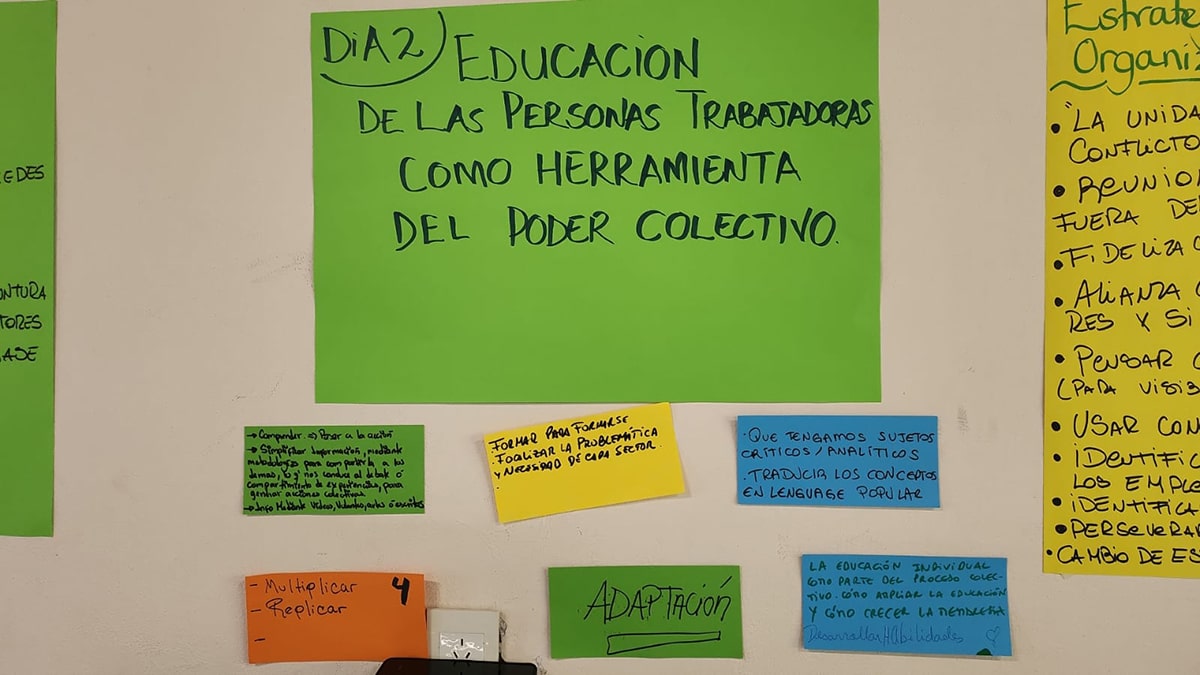 EDES
NTURA
TORES
ASE
DiA 2) EDUCACION
DE LAS PERSONAS TRABAJADORAS
COMO HERRAMIENTA
DEL PODER COLECTIVO.
→ Comprender ⇒ Pasar a la acción
→ Simplificar Información, mediante
metodologías para compartirla a los
demas, q' nos conduce al debate ó
compartimiento de experiencias, para
generar acciones colectivas
→ Info Mediante Videos, Volantes, artes ó escritos
FORMAR PARA FORMARSE
. FOCALIZAR LA PROBLEMÁTICA
Y NECESIDAD DE CADA SECTOR.
· QUE TENGAMOS SUJETOS
CRÍTICOS/ANALÍTICOS
. TRADUCIR LOS CONCEPTOS
EN LENGUAGE POPULAR
- Multiplicar 4
- Replicar
-
ADAPTACIÓN
LA EDUCACIÓN INDIVIDUAL
COMO PARTE DEL PROCESO COLEC-
TIVO. CÓMO AMPLIAR LA EDUCACIÓN
Y CÓMO CRECER LA MEMBRESIA
Desarrollar HAbilidades
Estrate
Organiz
• "LA UNIDA
CONFLICTO
• REUNION
FUERA DE
• FIDELIZA
• ALIANZA
RES Y SI
• PENSAR
(PARA VISIB
• USAR CON
• IDENTIFIC
LOS EMPLE
• IDENTIFICA
• PERSEVERA
• CAMBIO DE ES